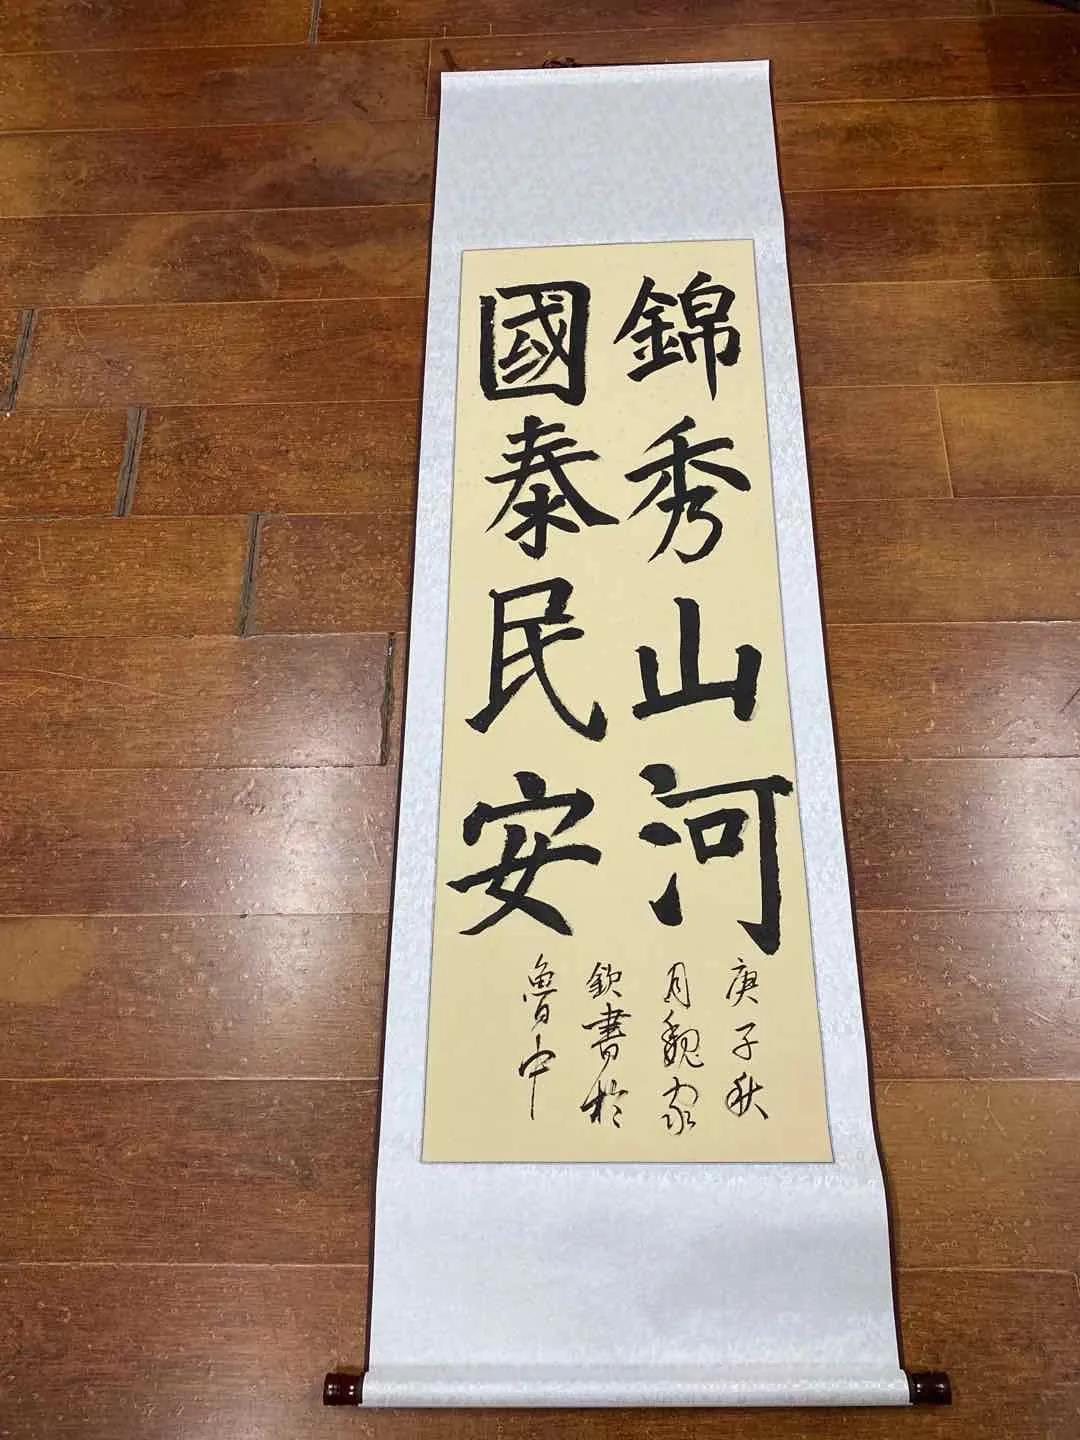 錦秀山河
國泰民安
庚子秋
月魏家
欽書於
魯中